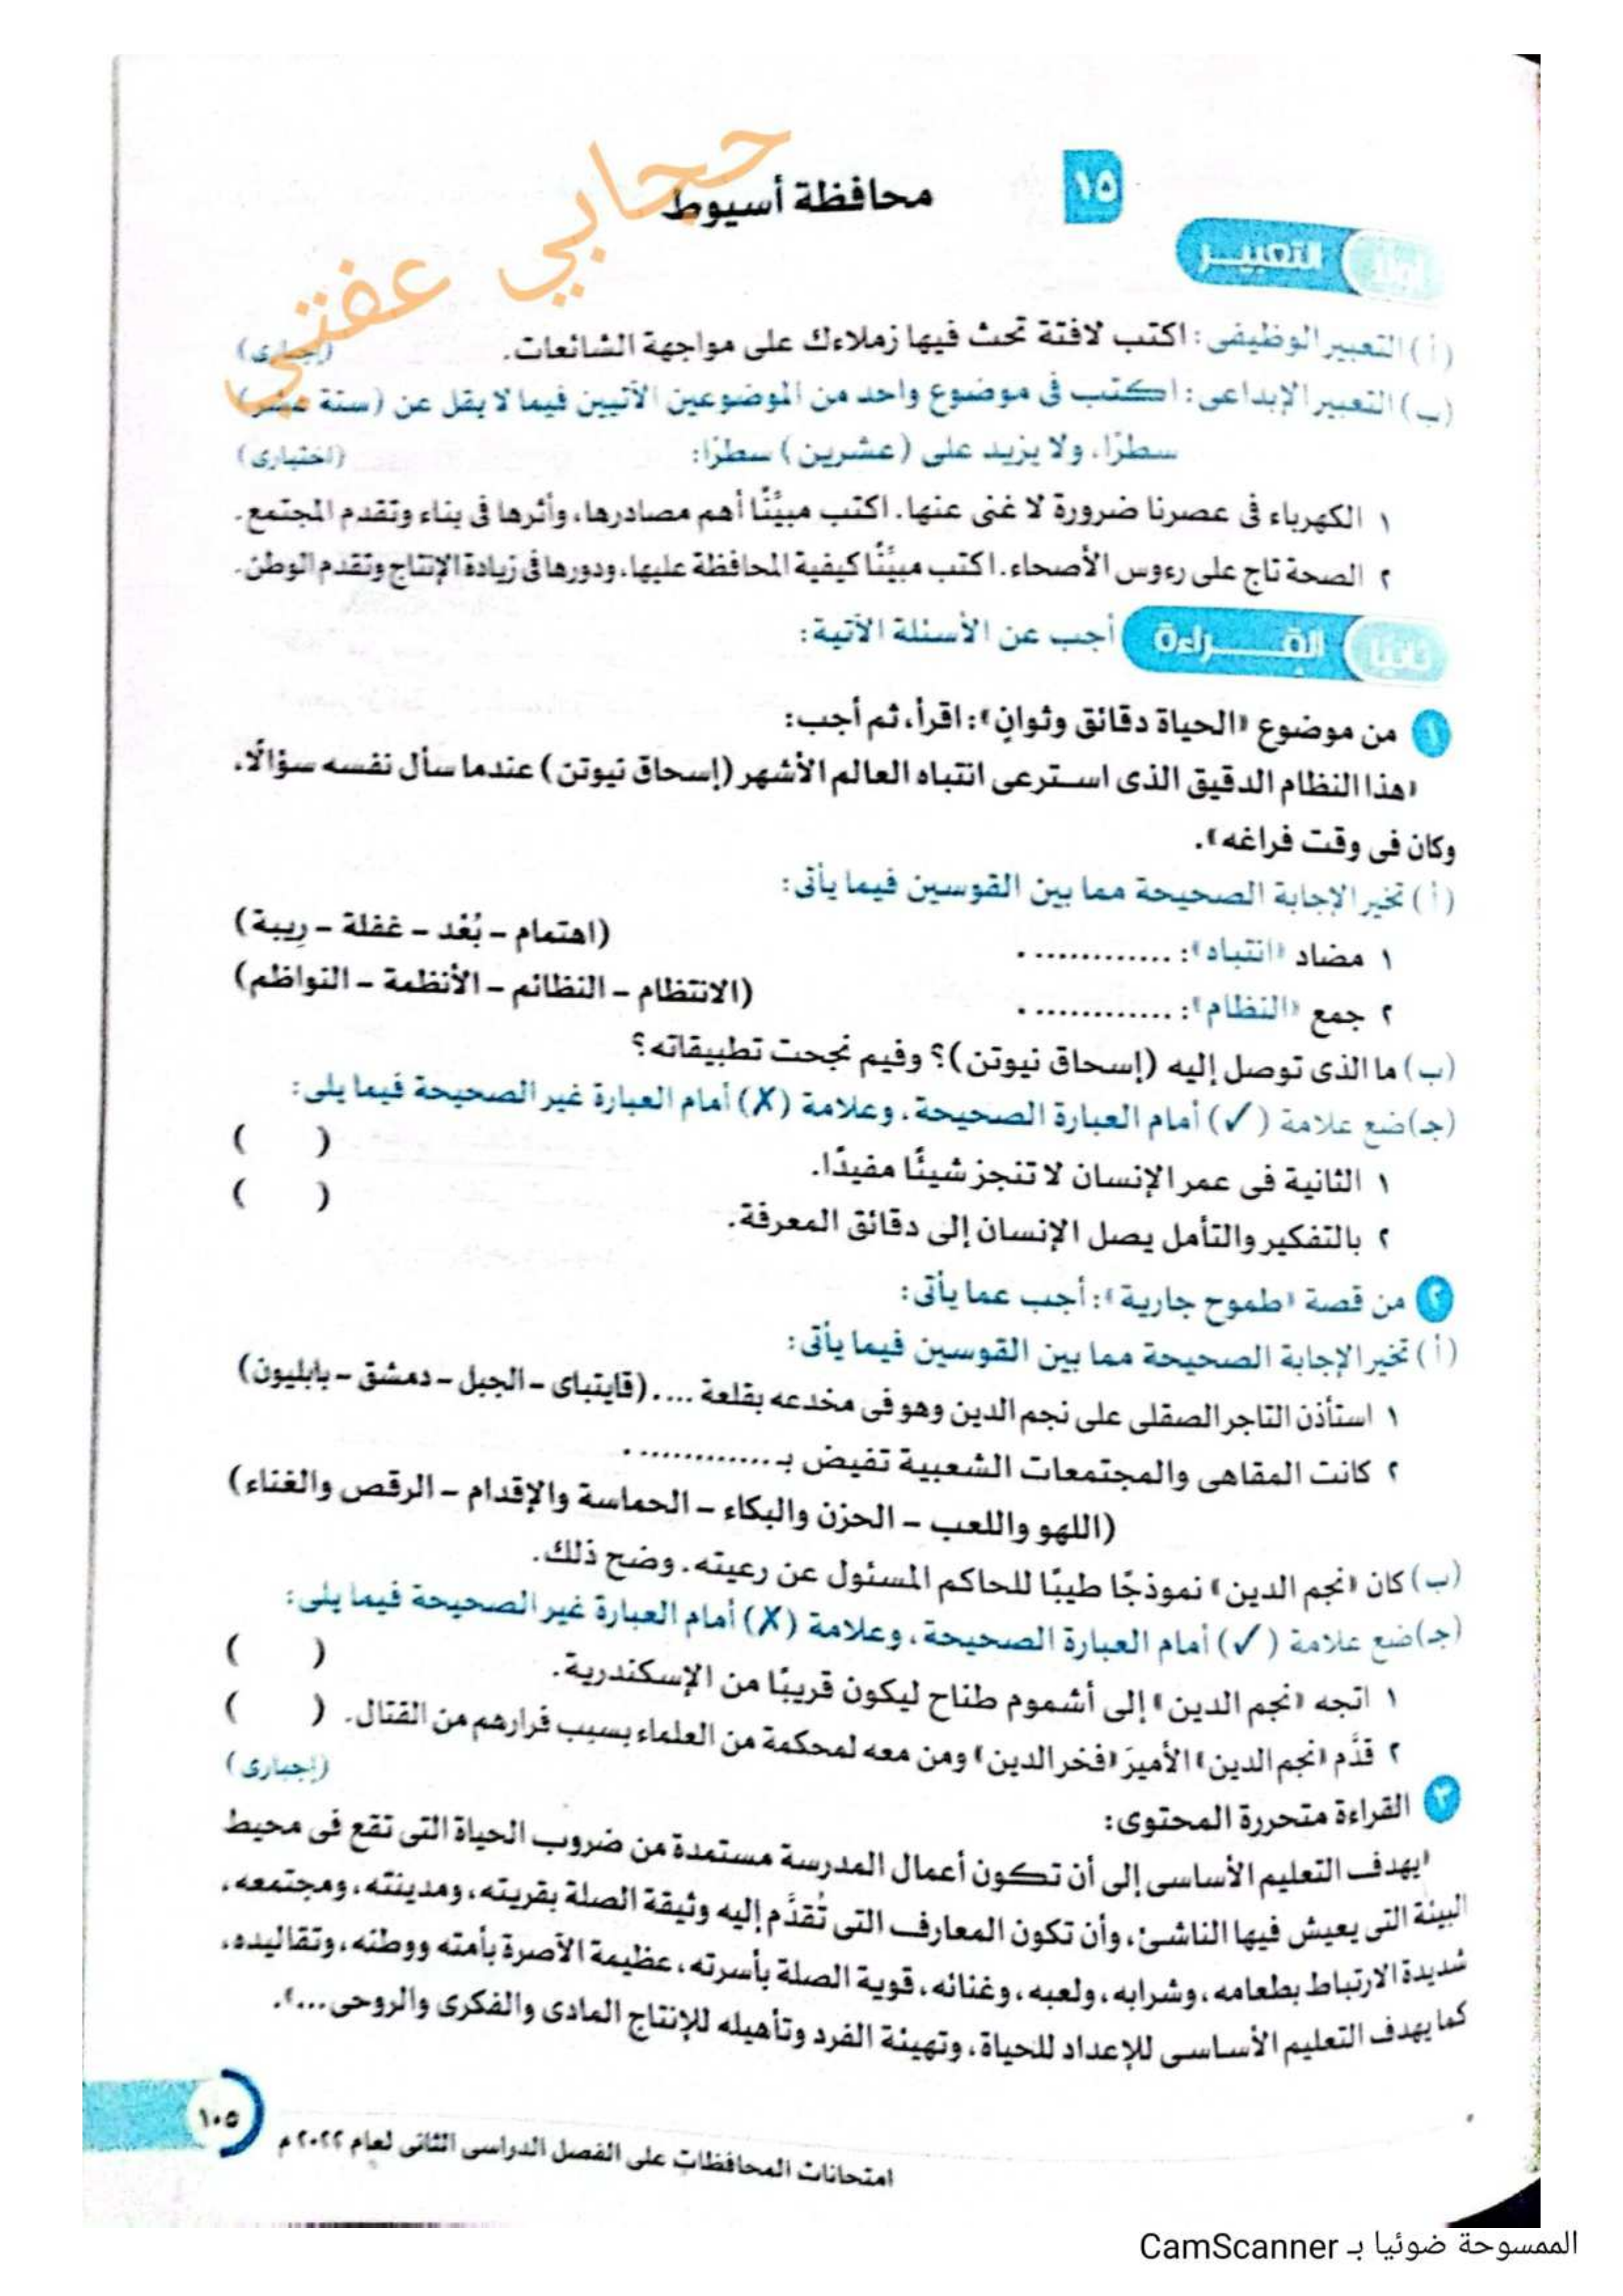 ١٥
محافظة أسيوط
حجابي عفتي
أولا التعبير
(أ) التعبير الوظيفى: اكتب لافتة تحث فيها زملاءك على مواجهة الشائعات. (إجبارى)
(ب) التعبير الإبداعى: اكتب فى موضوع واحد من الموضوعين الآتيين فيما لا يقل عن (ستة عشر)
سطرًا، ولا يزيد على (عشرين) سطرًا: (اختيارى)
١ الكهرباء فى عصرنا ضرورة لا غنى عنها. اكتب مبيِّنًا أهم مصادرها، وأثرها فى بناء وتقدم المجتمع.
٢ الصحة تاج على رءوس الأصحاء. اكتب مبيِّنًا كيفية المحافظة عليها، ودورها فى زيادة الإنتاج وتقدم الوطن.
ثانيا القراءة أجب عن الأسئلة الآتية:
١ من موضوع «الحياة دقائق وثوانٍ»: اقرأ، ثم أجب:
«هذا النظام الدقيق الذى استرعى انتباه العالم الأشهر (إسحاق نيوتن) عندما سأل نفسه سؤالًا،
وكان فى وقت فراغه».
(أ) تخير الإجابة الصحيحة مما بين القوسين فيما يأتى:
١ مضاد «انتباه»: ............. (اهتمام – بُعْد – غفلة – رِيبة)
٢ جمع «النظام»: ............. (الانتظام – النظائم – الأنظمة – النواظم)
(ب) ما الذى توصل إليه (إسحاق نيوتن)؟ وفيم نجحت تطبيقاته؟
(جـ) ضع علامة (✓) أمام العبارة الصحيحة، وعلامة (✗) أمام العبارة غير الصحيحة فيما يلى:
١ الثانية فى عمر الإنسان لا تنجز شيئًا مفيدًا. ( )
٢ بالتفكير والتأمل يصل الإنسان إلى دقائق المعرفة. ( )
٢ من قصة «طموح جارية»: أجب عما يأتى:
(أ) تخير الإجابة الصحيحة مما بين القوسين فيما يأتى:
١ استأذن التاجر الصقلى على نجم الدين وهو فى مخدعه بقلعة ..... (قايتباى – الجبل – دمشق – بابليون)
٢ كانت المقاهى والمجتمعات الشعبية تفيض بـ .............
(اللهو واللعب – الحزن والبكاء – الحماسة والإقدام – الرقص والغناء)
(ب) كان «نجم الدين» نموذجًا طيبًا للحاكم المسئول عن رعيته. وضح ذلك.
(جـ) ضع علامة (✓) أمام العبارة الصحيحة، وعلامة (✗) أمام العبارة غير الصحيحة فيما يلى:
١ اتجه «نجم الدين» إلى أشموم طناح ليكون قريبًا من الإسكندرية. ( )
٢ قدَّم «نجم الدين» الأميرَ «فخر الدين» ومن معه لمحكمة من العلماء بسبب فرارهم من القتال. ( )
٣ القراءة متحررة المحتوى: (إجبارى)
«يهدف التعليم الأساسى إلى أن تكون أعمال المدرسة مستمدة من ضروب الحياة التى تقع فى محيط
البيئة التى يعيش فيها الناشئ، وأن تكون المعارف التى تُقدَّم إليه وثيقة الصلة بقريته، ومدينته، ومجتمعه،
شديدة الارتباط بطعامه، وشرابه، ولعبه، وغنائه، قوية الصلة بأسرته، عظيمة الآصرة بأمته ووطنه، وتقاليده،
كما يهدف التعليم الأساسى للإعداد للحياة، وتهيئة الفرد وتأهيله للإنتاج المادى والفكرى والروحى...».
١٠٥
امتحانات المحافظات على الفصل الدراسى الثانى لعام ٢٠٢٢ م
الممسوحة ضوئيا بـ CamScanner